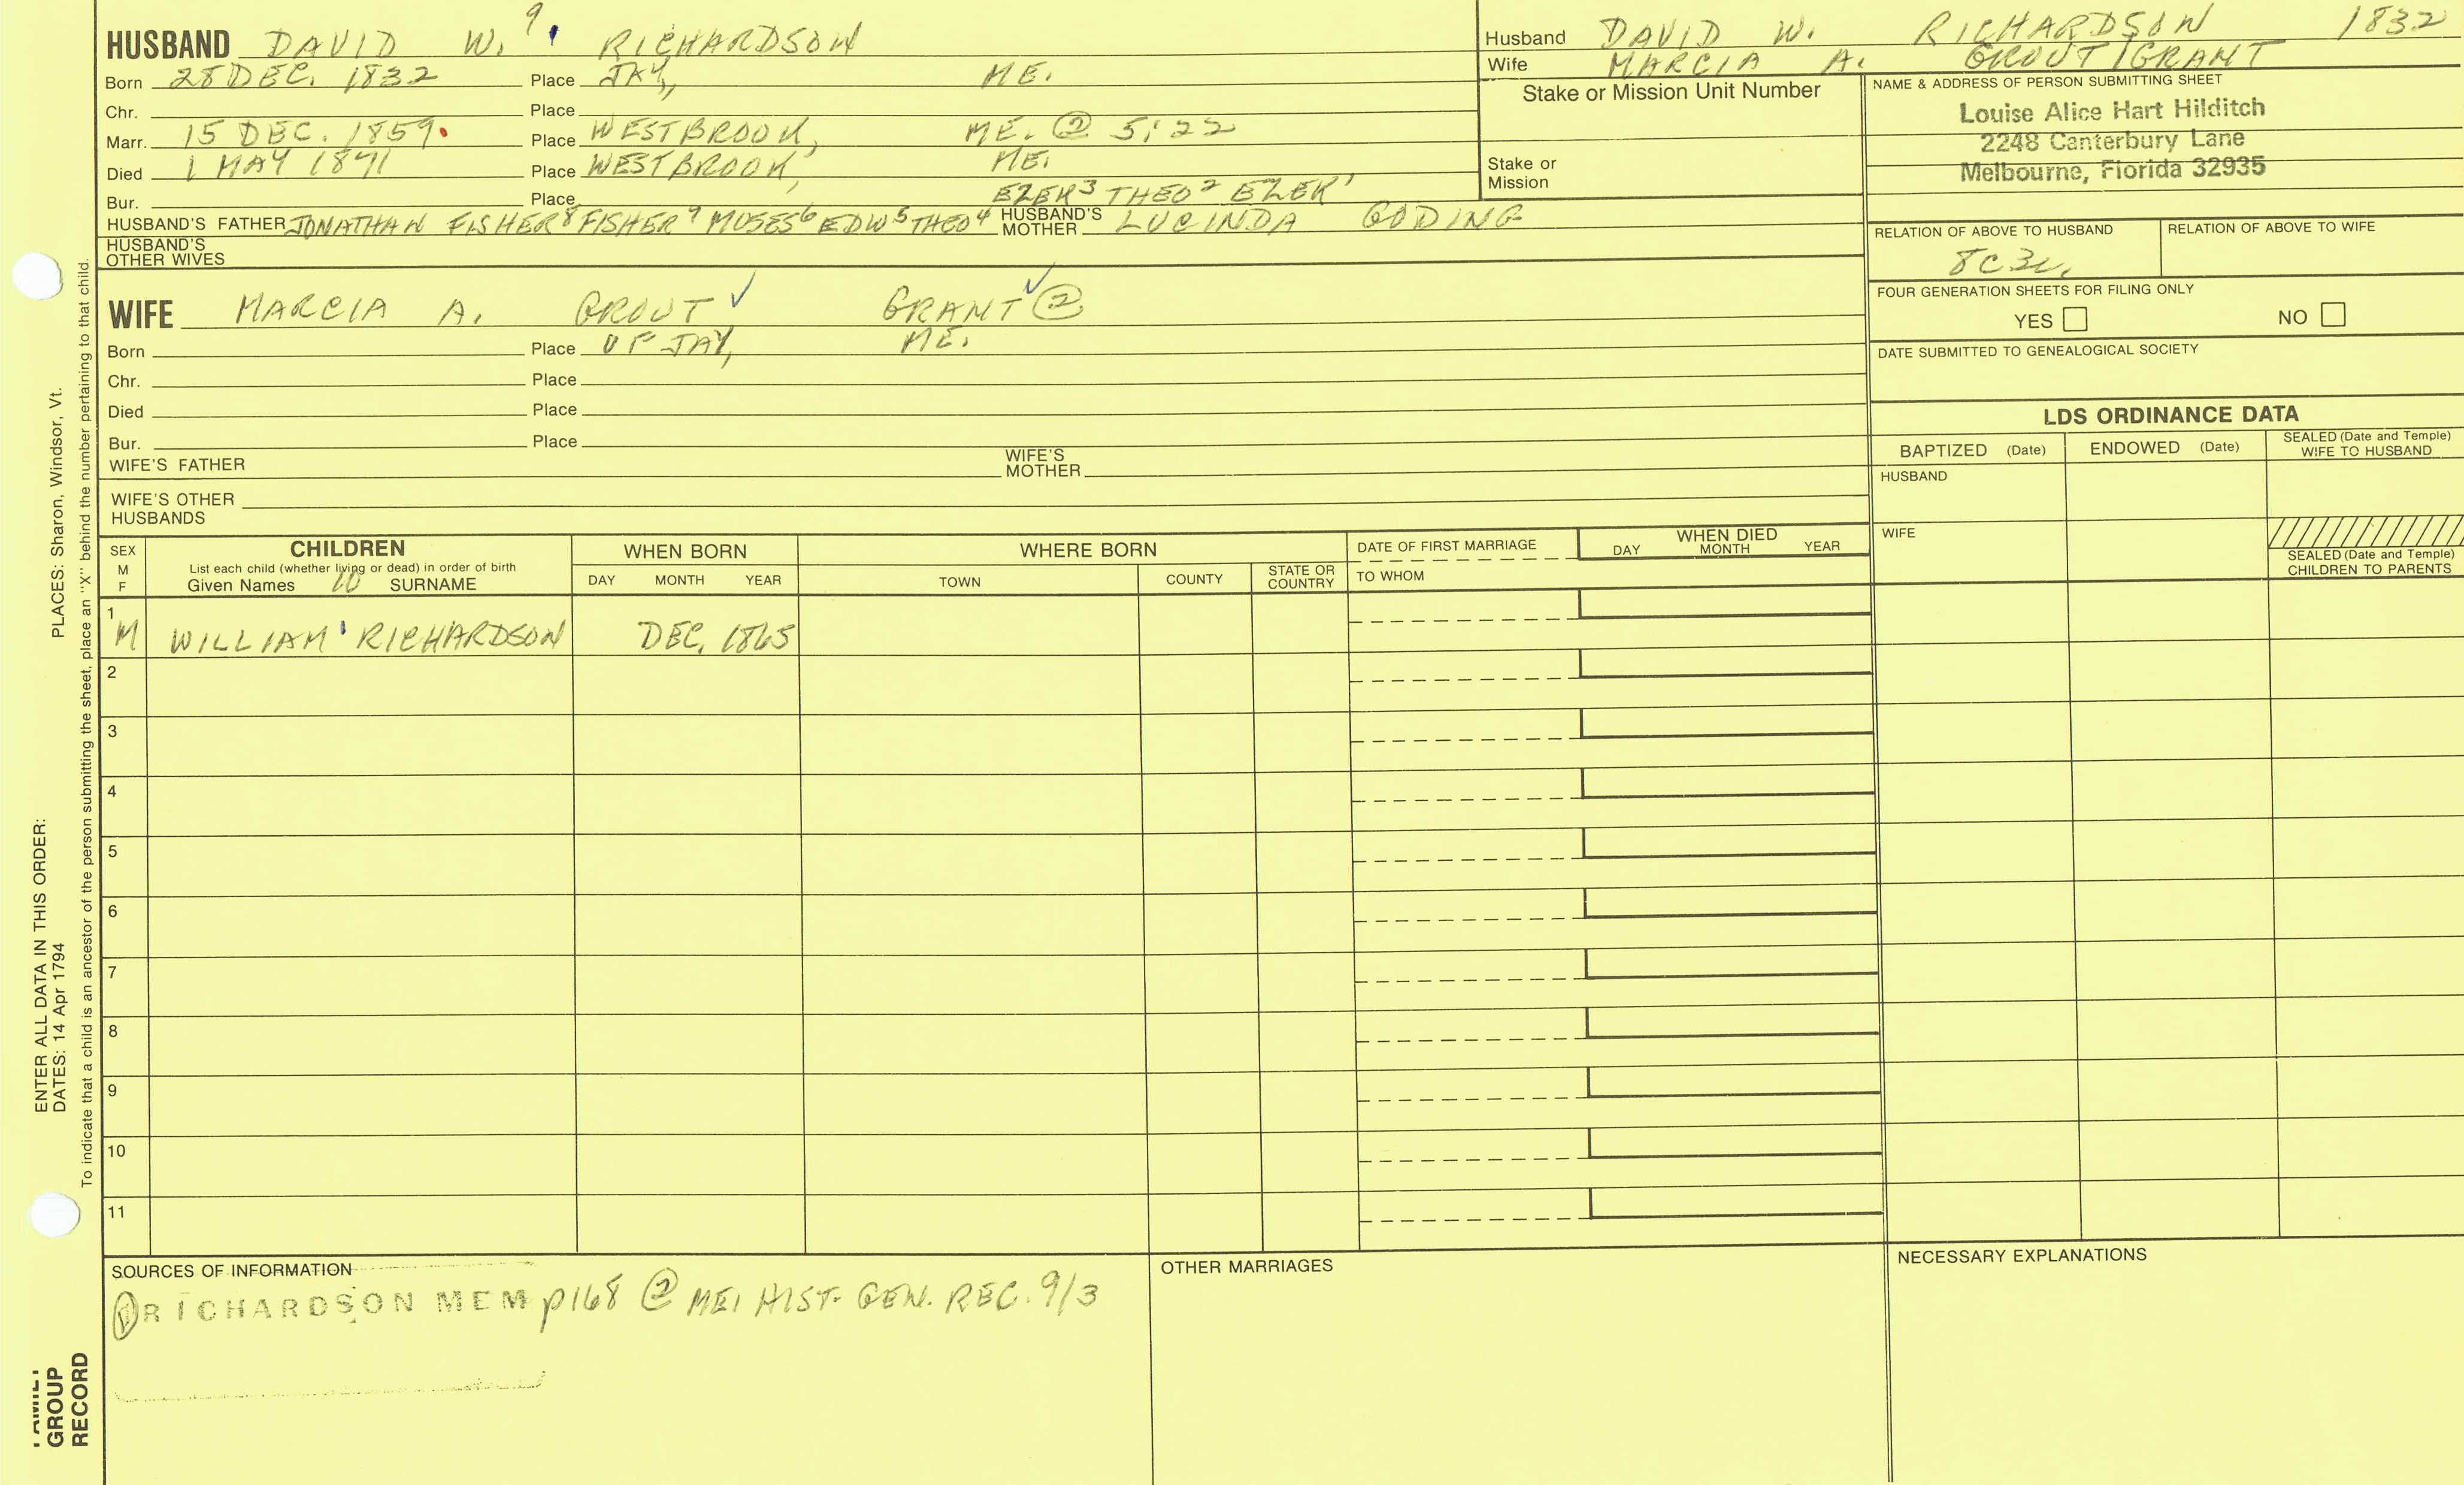 HUSBAND DAVID W. 9 RICHARDSON
Born 28 DEC. 1832 Place JAY, ME.
Chr. Place
Marr. 15 DEC. 1859. Place WESTBROOK, ME. @ 5:22
Died 1 MAY 1891 Place WESTBROOK, ME.
Bur. Place EZEK3 THEO2 EZEK1
HUSBAND'S FATHER JONATHAN FISHER8 FISHER7 MOSES6 EDW5 THEO4 HUSBAND'S MOTHER LUCINDA GODING
HUSBAND'S OTHER WIVES
WIFE MARCIA A. GROUT ✓ GRANT ✓ ②
Born Place OF JAY, ME.
Chr. Place
Died Place
Bur. Place
WIFE'S FATHER WIFE'S MOTHER
WIFE'S OTHER HUSBANDS
Husband DAVID W. RICHARDSON 1832
Wife MARCIA A. GROUT/GRANT
Stake or Mission Unit Number
Stake or Mission
NAME & ADDRESS OF PERSON SUBMITTING SHEET
Louise Alice Hart Hilditch
2248 Canterbury Lane
Melbourne, Florida 32935
RELATION OF ABOVE TO HUSBAND RELATION OF ABOVE TO WIFE
FOUR GENERATION SHEETS FOR FILING ONLY
YES NO
DATE SUBMITTED TO GENEALOGICAL SOCIETY
LDS ORDINANCE DATA
BAPTIZED (Date) ENDOWED (Date) SEALED (Date and Temple) WIFE TO HUSBAND
HUSBAND
WIFE
SEALED (Date and Temple) CHILDREN TO PARENTS
SEX M F
CHILDREN
List each child (whether living or dead) in order of birth
Given Names 10 SURNAME
WHEN BORN
DAY MONTH YEAR
WHERE BORN
TOWN COUNTY STATE OR COUNTRY
DATE OF FIRST MARRIAGE
TO WHOM
WHEN DIED
DAY MONTH YEAR
1
M WILLIAM RICHARDSON DEC. 1865
2
3
4
5
6
7
8
9
10
11
SOURCES OF INFORMATION
① RICHARDSON MEM p168 ② ME. HIST. GEN. REC. 9/3
OTHER MARRIAGES
NECESSARY EXPLANATIONS
PLACES: Sharon, Windsor, Vt.
ENTER ALL DATA IN THIS ORDER:
DATES: 14 Apr 1794
To indicate that a child is an ancestor of the person submitting the sheet, place an "X" behind the number pertaining to that child.
FAMILY
GROUP
RECORD